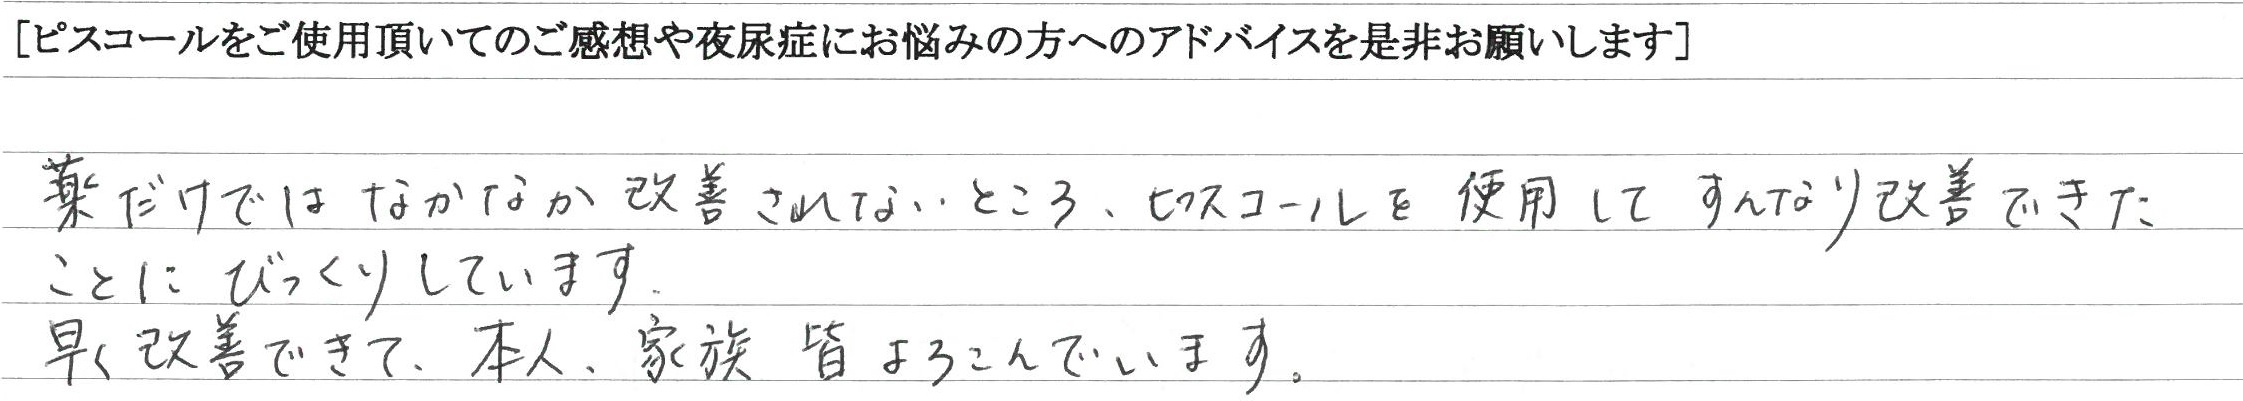 [ピスコールをご使用頂いてのご感想や夜尿症にお悩みの方へのアドバイスを是非お願いします]
薬だけではなかなか改善されないところ、ピスコールを使用してすんなり改善できた
ことにびっくりしています.
早く改善できて、本人、家族皆よろこんでいます。